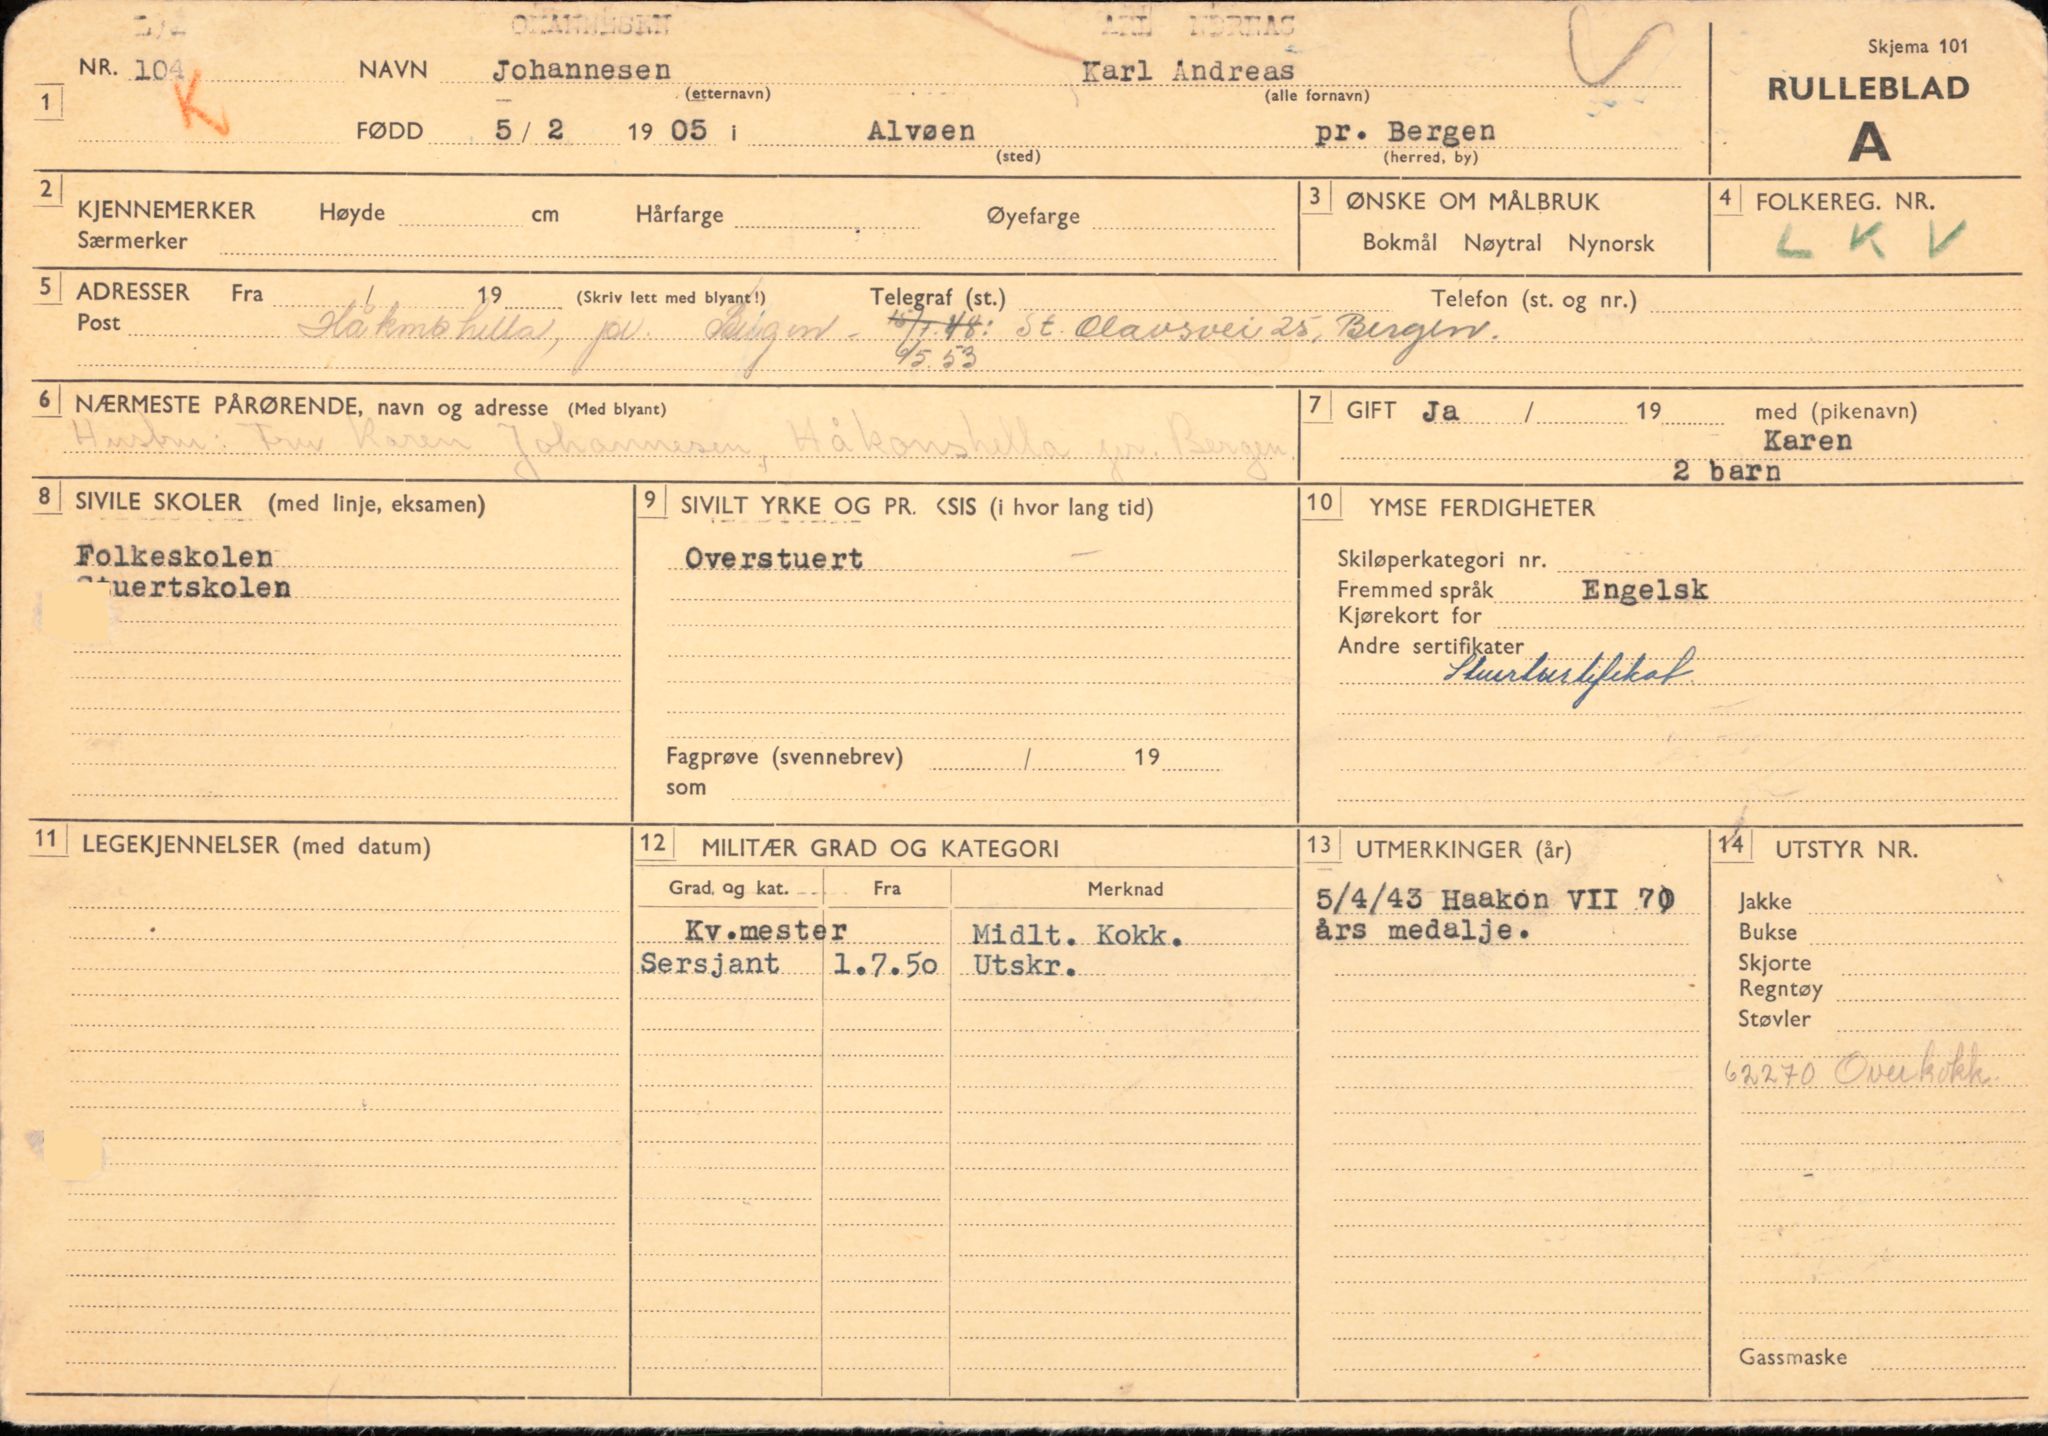 Skjema 101
RULLEBLAD
A
1
NR. 104 NAVN Johannesen Karl Andreas
(etternavn) (alle fornavn)
K
FØDD 5 / 2 19 05 i Alvøen pr. Bergen
(sted) (herred, by)
2
KJENNEMERKER Høyde cm Hårfarge Øyefarge
Særmerker
3 ØNSKE OM MÅLBRUK
Bokmål Nøytral Nynorsk
4 FOLKEREG. NR.
L K V
5 ADRESSER Fra / 19 (Skriv lett med blyant!) Telegraf (st.) Telefon (st. og nr.)
Post Håkonshella, pr. Bergen - 15/1.48: St. Olavsvei 25, Bergen.
6/5.53
6 NÆRMESTE PÅRØRENDE, navn og adresse (Med blyant)
Hustru: Fru Karen Johannesen, Håkonshella pr. Bergen.
7 GIFT Ja / 19 med (pikenavn)
Karen
2 barn
8 SIVILE SKOLER (med linje, eksamen)
Folkeskolen
Stuertskolen
9 SIVILT YRKE OG PR. KSIS (i hvor lang tid)
Overstuert
Fagprøve (svennebrev) / 19
som
10 YMSE FERDIGHETER
Skiløperkategori nr.
Fremmed språk Engelsk
Kjørekort for
Andre sertifikater
Stuertsertifikat
11 LEGEKJENNELSER (med datum)
12 MILITÆR GRAD OG KATEGORI
Grad. og kat. Fra Merknad
Kv.mester Midlt. Kokk.
Sersjant 1.7.50 Utskr.
13 UTMERKINGER (år)
5/4/43 Haakon VII 70
års medalje.
14 UTSTYR NR.
Jakke
Bukse
Skjorte
Regntøy
Støvler
62270 Overkokk.
Gassmaske